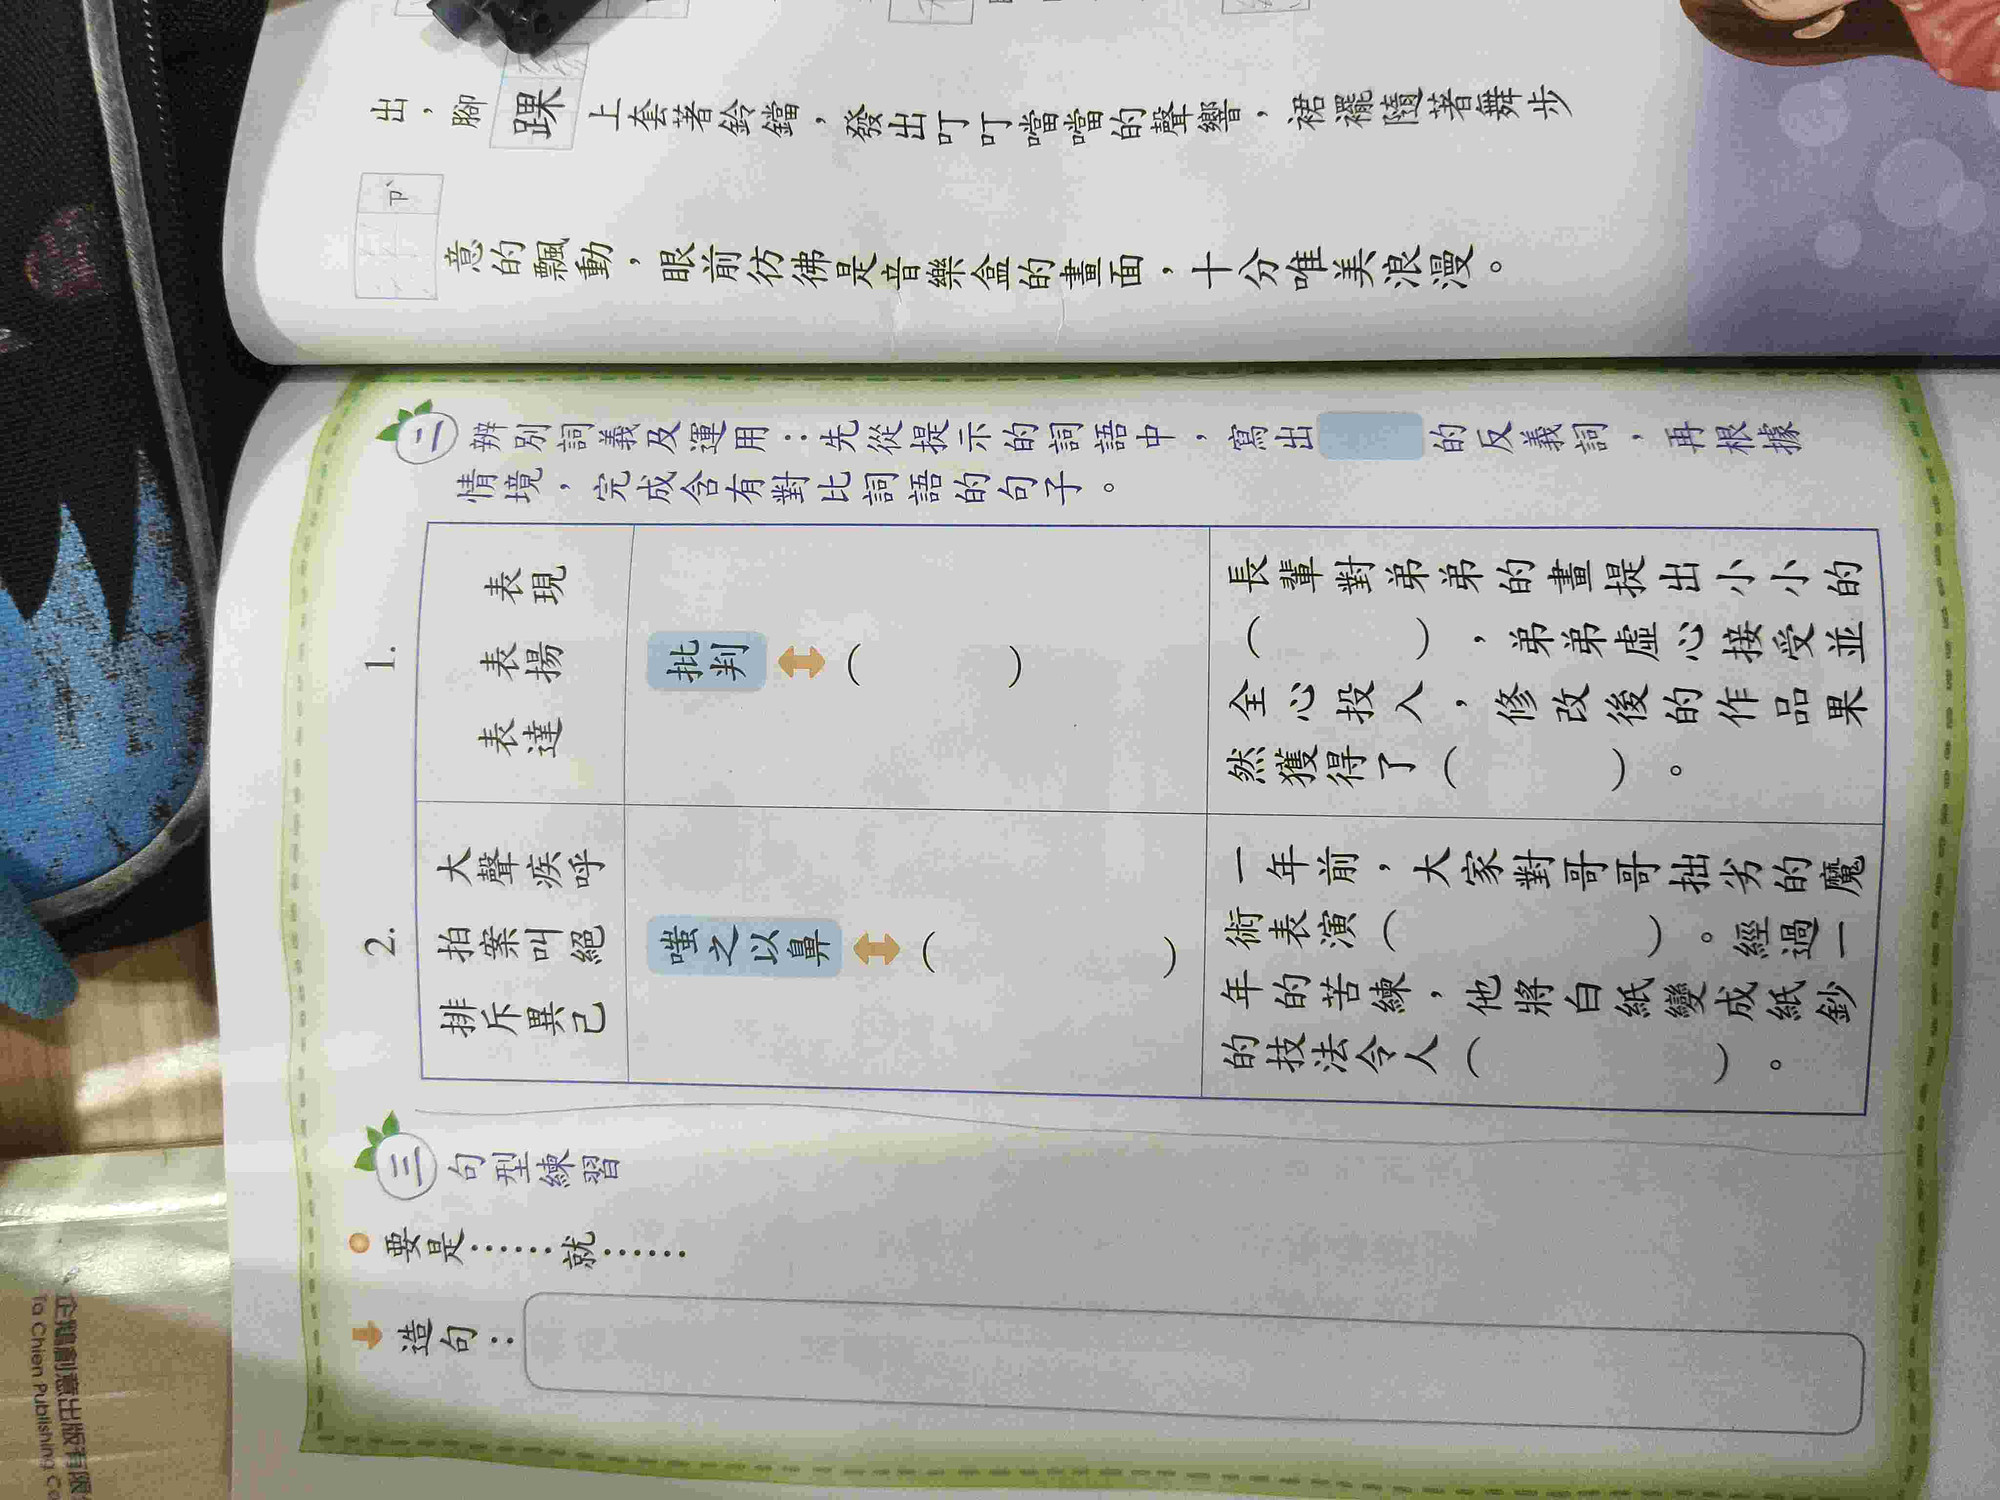 出，腳踝上套著鈴鐺，發出叮叮噹噹的聲響，裙襬隨著舞步
意的飄動，眼前彷彿是音樂盒的畫面，十分唯美浪漫。
二
辨別詞義及運用：先從提示的詞語中，寫出 的反義詞，再根據
情境，完成含有對比詞語的句子。
1.
表現
表揚
表達
批判
（ ）
長輩對弟弟的畫提出小小的
（ ），弟弟虛心接受並
全心投入，修改後的作品果
然獲得了（ ）。
2.
大聲疾呼
拍案叫絕
排斥異己
嗤之以鼻
（ ）
一年前，大家對哥哥拙劣的魔
術表演（ ）。經過一
年的苦練，他將白紙變成紙鈔
的技法令人（ ）。
三
句型練習
要是……就……
造句：
Ta Chien Publishing Co